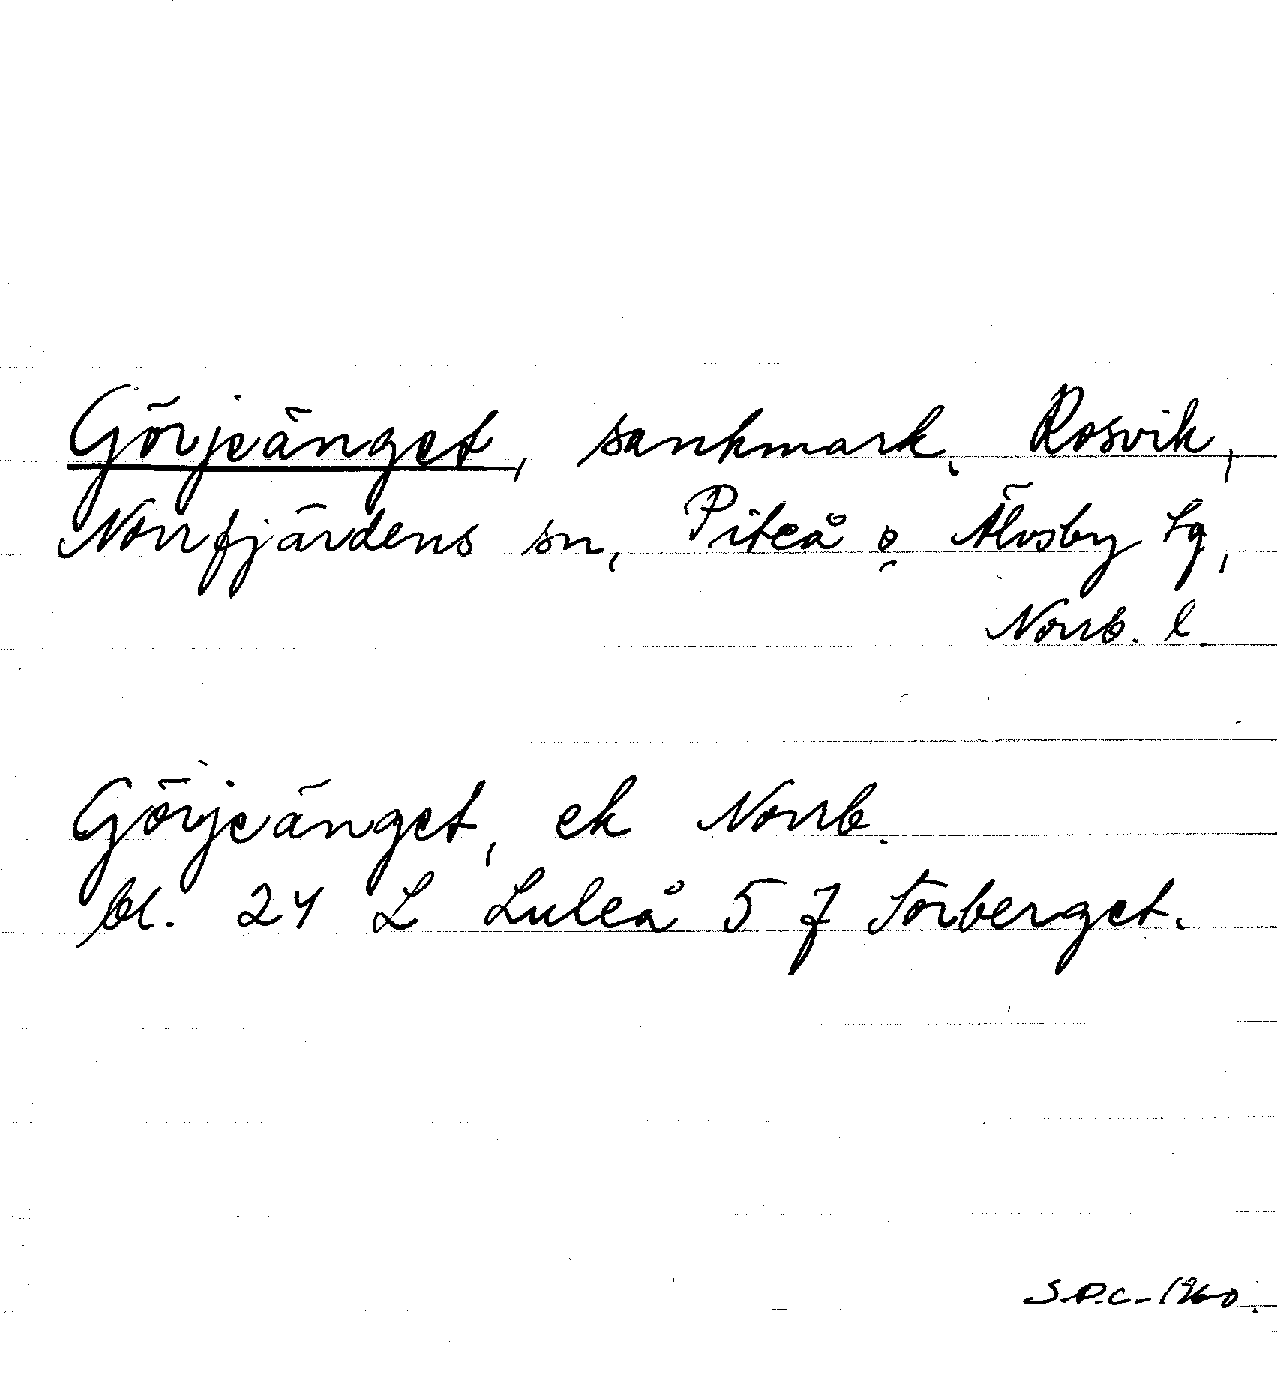 Görjeänget, sankmark, Rosvik,
Norrfjärdens sn, Piteå o Älvsby tg,
Norrb. l.
Görjeänget, ek Norrb.
bl. 24 L Luleå 5 f Torberget.
S.P.C. 1960.